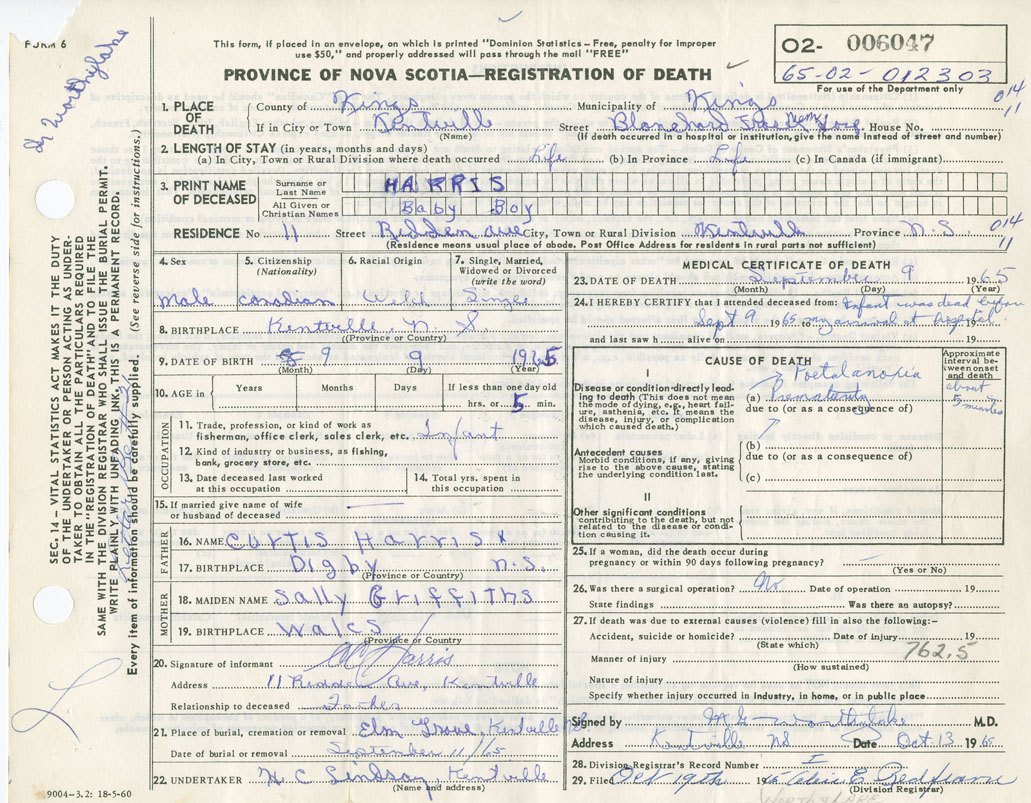 FORM 6
This form, if placed in an envelope, on which is printed "Dominion Statistics – Free, penalty for improper
use $50," and properly addressed will pass through the mail "FREE"
PROVINCE OF NOVA SCOTIA—REGISTRATION OF DEATH
02- 006047
65-02-012303
For use of the Department only
014
11
1. PLACE OF DEATH
County of Kings Municipality of Kings
If in City or Town Kentville Street Blanchard House No.
(Name) (If death occurred in a hospital or institution, give its name instead of street and number)
2. LENGTH OF STAY (in years, months and days)
(a) In City, Town or Rural Division where death occurred Life (b) In Province Life (c) In Canada (if immigrant)
3. PRINT NAME OF DECEASED
Surname or Last Name HARRIS
All Given or Christian Names Baby Boy
RESIDENCE No 11 Street Redden Ave City, Town or Rural Division Kentville Province N.S 014
11
(Residence means usual place of abode. Post Office Address for residents in rural parts not sufficient)
4. Sex
male
5. Citizenship
(Nationality)
Canadian
6. Racial Origin
Welch
7. Single, Married, Widowed or Divorced
(write the word)
Single
8. BIRTHPLACE Kentville, N. S.
(Province or Country)
9. DATE OF BIRTH 9 9 1965
(Month) (Day) (Year)
10. AGE in
Years Months Days If less than one day old
hrs. or 5 min.
OCCUPATION
11. Trade, profession, or kind of work as
fisherman, office clerk, sales clerk, etc. Infant
12. Kind of industry or business, as fishing,
bank, grocery store, etc.
13. Date deceased last worked
at this occupation
14. Total yrs. spent in
this occupation
15. If married give name of wife
or husband of deceased
FATHER
16. NAME Curtis Harris
17. BIRTHPLACE Digby N.S.
(Province or Country)
MOTHER
18. MAIDEN NAME Sally Griffiths
19. BIRTHPLACE Wales
(Province or Country
20. Signature of informant Harris
Address 11 Redden Ave, Kentville
Relationship to deceased Father
21. Place of burial, cremation or removal Elm Grove, Kentville N.S.
Date of burial or removal September 11/65
22. UNDERTAKER H. C Lindsay, Kentville
(Name and address)
9004-3.2: 18-5-60
MEDICAL CERTIFICATE OF DEATH
23. DATE OF DEATH September 9 1965
(Month) (Day) (Year)
24. I HEREBY CERTIFY that I attended deceased from: Infant was dead before
Sept 9 1965 my arrival at hospital 19
and last saw h alive on 19
CAUSE OF DEATH
Approximate interval between onset and death
I
Disease or condition directly leading to death (This does not mean the mode of dying, e.g., heart failure, asthenia, etc. It means the disease, injury, or complication which caused death.)
Foetal anoxia
(a) Prematurity
about
5 minutes
due to (or as a consequence of)
Antecedent causes
Morbid conditions, if any, giving rise to the above cause, stating the underlying condition last.
(b)
due to (or as a consequence of)
(c)
II
Other significant conditions
contributing to the death, but not related to the disease or condition causing it.
25. If a woman, did the death occur during
pregnancy or within 90 days following pregnancy?
(Yes or No)
26. Was there a surgical operation? No Date of operation 19
State findings Was there an autopsy?
27. If death was due to external causes (violence) fill in also the following:-
Accident, suicide or homicide? Date of injury 19
(State which)
762.5
Manner of injury
(How sustained)
Nature of injury
Specify whether injury occurred in industry, in home, or in public place
Signed by M.D.
Address Kentville NS Date Oct 13 1965
28. Division Registrar's Record Number
29. Filed Oct 19th
(Division Registrar)
SEC. 14 – VITAL STATISTICS ACT MAKES IT THE DUTY
OF THE UNDERTAKER OR PERSON ACTING AS UNDER-
TAKER TO OBTAIN ALL THE PARTICULARS REQUIRED
IN THE "REGISTRATION OF DEATH" AND TO FILE THE
SAME WITH THE DIVISION REGISTRAR WHO SHALL ISSUE THE BURIAL PERMIT.
WRITE PLAINLY WITH UNFADING INK, THIS IS A PERMANENT RECORD.
Every item of information should be carefully supplied. (See reverse side for instructions.)
Dr Worthylake